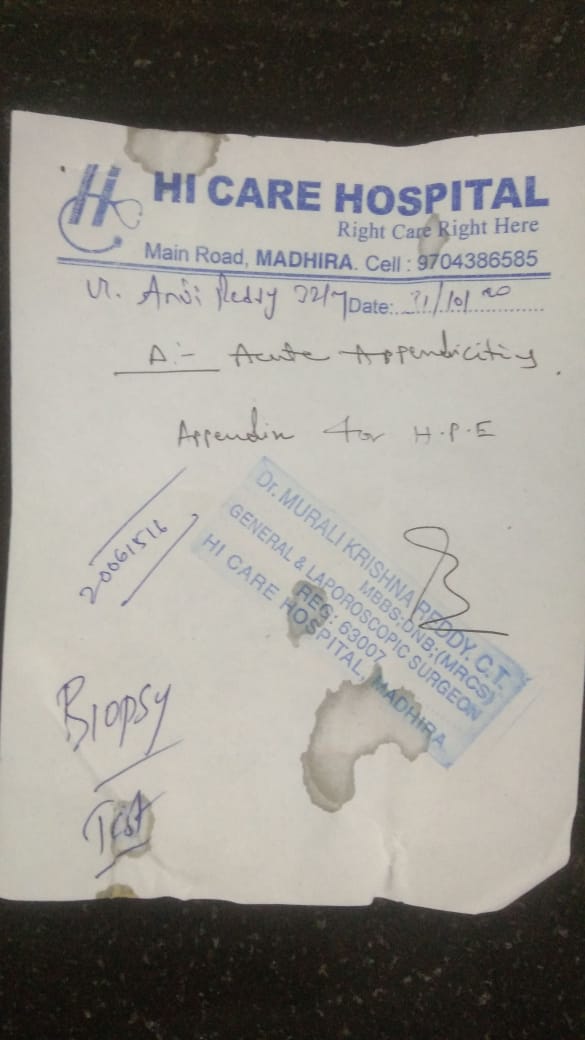 H
HI CARE HOSPITAL
Right Care Right Here
Main Road, MADHIRA. Cell : 9704386585
Reddy Date: 31/10/20
Δ:- Acute Appendicitis.
Appendix for H.P.E
20061516
Dr. MURALI KRISHNA REDDY. C.T.
MBBS;DNB;(MRCS)
GENERAL & LAPOROSCOPIC SURGEON
REG: 63007
HI CARE HOSPITAL, MADHIRA.
Biopsy
Test